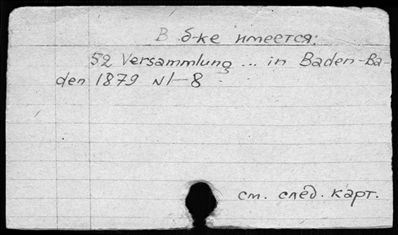 В б-ке имеется:
52 Versammlung ... in Baden-Ba
den 1879 N1-8
см. след. карт.